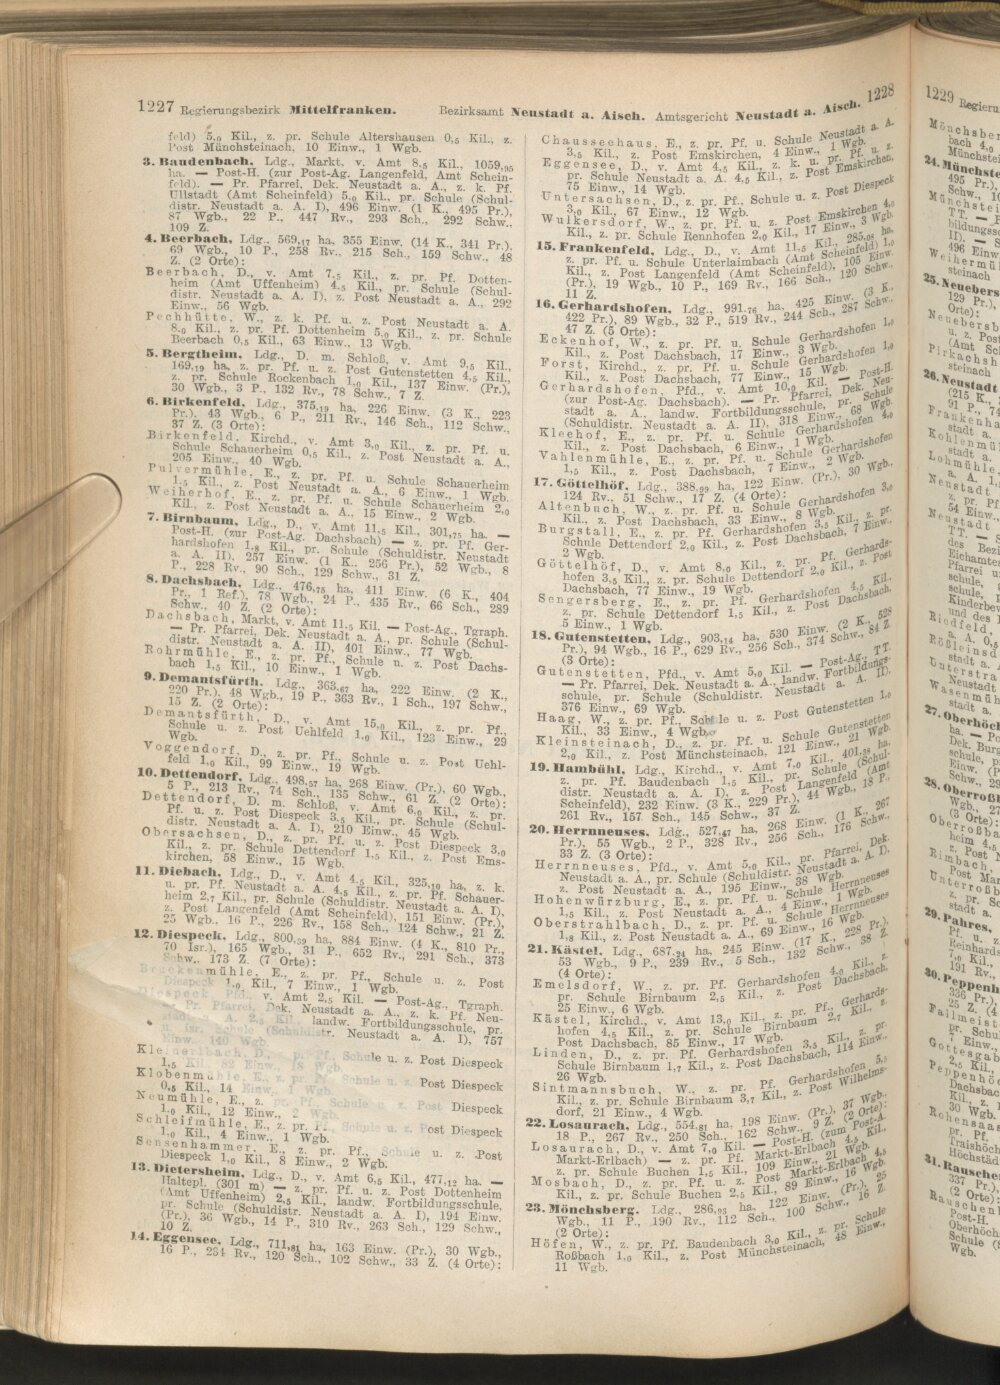 1227 Regierungsbezirk Mittelfranken. Bezirksamt Neustadt a. Aisch. Amtsgericht Neustadt a. Aisch. 1228
feld) 5,0 Kil., z. pr. Schule Altershausen 0,5 Kil., z.
Post Münchsteinach, 10 Einw., 1 Wgb.
3. Baudenbach, Ldg., Markt, v. Amt 8,5 Kil., 1059,95
ha. — Post-H. (zur Post-Ag. Langenfeld, Amt Schein-
feld). — Pr. Pfarrei, Dek. Neustadt a. A., z. k. Pf.
Ullstadt (Amt Scheinfeld) 5,0 Kil., pr. Schule (Schul-
distr. Neustadt a. A. I), 496 Einw. (1 K., 495 Pr.),
87 Wgb., 22 P., 447 Rv., 293 Sch., 292 Schw.,
109 Z.
4. Beerbach, Ldg., 569,17 ha, 355 Einw. (14 K., 341 Pr.),
69 Wgb., 10 P., 258 Rv., 215 Sch., 159 Schw., 48
Z. (2 Orte):
Beerbach, D., v. Amt 7,5 Kil., z. pr. Pf. Dotten-
heim (Amt Uffenheim) 4,5 Kil., pr. Schule (Schul-
distr. Neustadt a. A. I), z. Post Neustadt a. A., 292
Einw., 56 Wgb.
Pechhütte, W., z. k. Pf. u. z. Post Neustadt a. A.
8,0 Kil., z. pr. Pf. Dottenheim 5,0 Kil., z. pr. Schule
Beerbach 0,5 Kil., 63 Einw., 13 Wgb.
5. Bergtheim, Ldg., D. m. Schloß, v. Amt 9,5 Kil.,
169,19 ha, z. pr. Pf. u. z. Post Gutenstetten 4,5 Kil.,
z. pr. Schule Rockenbach 1,0 Kil., 137 Einw. (Pr.),
30 Wgb., 3 P., 132 Rv., 78 Schw., 7 Z.
6. Birkenfeld, Ldg., 375,19 ha, 226 Einw. (3 K., 223
Pr.), 43 Wgb., 6 P., 211 Rv., 146 Sch., 112 Schw.,
37 Z. (3 Orte):
Birkenfeld, Kirchd., v. Amt 3,0 Kil., z. pr. Pf. u.
Schule Schauerheim 0,5 Kil., z. Post Neustadt a. A.,
205 Einw., 40 Wgb.
Pulvermühle, E., z. pr. Pf. u. Schule Schauerheim
1,5 Kil., z. Post Neustadt a. A., 6 Einw., 1 Wgb.
Weiherhof, E., z. pr. Pf. u. Schule Schauerheim 2,0
Kil., z. Post Neustadt a. A., 15 Einw., 2 Wgb.
7. Birnbaum, Ldg., D., v. Amt 11,5 Kil., 301,75 ha. —
Post-H. (zur Post-Ag. Dachsbach) — z. pr. Pf. Ger-
hardshofen 1,8 Kil., pr. Schule (Schuldistr. Neustadt
a. A. II), 257 Einw. (1 K., 256 Pr.), 52 Wgb., 8
P., 228 Rv., 90 Sch., 129 Schw., 31 Z.
8. Dachsbach, Ldg., 476,75 ha, 411 Einw. (6 K., 404
Pr., 1 Ref.), 78 Wgb., 24 P., 435 Rv., 66 Sch., 289
Schw., 40 Z. (2 Orte):
Dachsbach, Markt, v. Amt 11,5 Kil. — Post-Ag., Tgraph.
— Pr. Pfarrei, Dek. Neustadt a. A., pr. Schule (Schul-
distr. Neustadt a. A. II), 401 Einw., 77 Wgb.
Rohrmühle, E., z. pr. Pf., Schule u. z. Post Dachs-
bach 1,5 Kil., 10 Einw., 1 Wgb.
9. Demantsfürth, Ldg., 363,67 ha, 222 Einw. (2 K.,
220 Pr.), 48 Wgb., 19 P., 363 Rv., 1 Sch., 197 Schw.,
15 Z. (2 Orte):
Demantsfürth, D., v. Amt 15,0 Kil., z. pr. Pf.,
Schule u. z. Post Uehlfeld 1,0 Kil., 123 Einw., 29
Wgb.
Voggendorf, D., z. pr. Pf., Schule u. z. Post Uehl-
feld 1,0 Kil., 99 Einw., 19 Wgb.
10. Dettendorf, Ldg., 498,57 ha, 268 Einw. (Pr.), 60 Wgb.,
5 P., 213 Rv., 74 Sch., 135 Schw., 61 Z. (2 Orte):
Dettendorf, D. m. Schloß, v. Amt 6,0 Kil., z. pr.
Pf. u. z. Post Diespeck 3,5 Kil., pr. Schule (Schul-
distr. Neustadt a. A. I), 210 Einw., 45 Wgb.
Obersachsen, D., z. pr. Pf. u. z. Post Diespeck 3,0
Kil., z. pr. Schule Dettendorf 1,5 Kil., z. Post Ems-
kirchen, 58 Einw., 15 Wgb.
11. Diebach, Ldg., D., v. Amt 4,5 Kil., 325,10 ha, z. k.
u. pr. Pf. Neustadt a. A. 4,5 Kil., z. pr. Pf. Schauer-
heim 2,7 Kil., pr. Schule (Schuldistr. Neustadt a. A. I),
z. Post Langenfeld (Amt Scheinfeld), 151 Einw. (Pr.),
25 Wgb., 16 P., 226 Rv., 158 Sch., 124 Schw., 21 Z.
12. Diespeck, Ldg., 800,39 ha, 884 Einw. (4 K., 810 Pr.,
70 Isr.), 165 Wgb., 31 P., 652 Rv., 291 Sch., 373
Schw., 173 Z. (7 Orte):
Bruckenmühle, E., z. pr. Pf., Schule u. z. Post
Diespeck 1,0 Kil., 7 Einw., 1 Wgb.
Diespeck, Pfd., v. Amt 2,5 Kil. — Post-Ag., Tgraph.
— Pr. Pfarrei, Dek. Neustadt a. A., z. k. Pf. Neu-
stadt a. A. 2,5 Kil., landw. Fortbildungsschule, pr.
u. isr. Schule (Schuldistr. Neustadt a. A. I), 757
Einw., 140 Wgb.
Kleiderlbach, D., z. pr. Pf., Schule u. z. Post Diespeck
1,5 Kil., 82 Einw., 18 Wgb.
Klobenmühle, E., z. pr. Pf., Schule u. z. Post Diespeck
0,5 Kil., 14 Einw., 1 Wgb.
Neumühle, E., z. pr. Pf., Schule u. z. Post Diespeck
1,0 Kil., 12 Einw., 2 Wgb.
Schleifmühle, E., z. pr. Pf., Schule u. z. Post Diespeck
1,0 Kil., 4 Einw., 1 Wgb.
Sensenhammer, E., z. pr. Pf., Schule u. z. Post
Diespeck 1,0 Kil., 8 Einw., 2 Wgb.
13. Dietersheim, Ldg., D., v. Amt 6,5 Kil., 477,12 ha. —
Haltepl. (301 m) — z. pr. Pf. u. z. Post Dottenheim
(Amt Uffenheim) 2,5 Kil., landw. Fortbildungsschule,
pr. Schule (Schuldistr. Neustadt a. A. I), 194 Einw.
(Pr.), 36 Wgb., 14 P., 310 Rv., 263 Sch., 129 Schw.,
10 Z.
14. Eggensee, Ldg., 711,81 ha, 163 Einw. (Pr.), 30 Wgb.,
16 P., 234 Rv., 120 Sch., 102 Schw., 33 Z. (4 Orte):
Chausseehaus, E., z. pr. Pf. u. Schule Neustadt a. A.
3,5 Kil., z. Post Emskirchen, 4 Einw., 1 Wgb.
Eggensee, D., v. Amt 4,5 Kil., z. k. u. pr. Pf. u. z.
pr. Schule Neustadt a. A. 4,5 Kil., z. Post Emskirchen,
75 Einw., 14 Wgb.
Untersachsen, D., z. pr. Pf., Schule u. z. Post Diespeck
3,0 Kil., 67 Einw., 12 Wgb.
Wulkersdorf, W., z. pr. Pf. u. z. Post Emskirchen 4,0
Kil., z. pr. Schule Rennhofen 2,0 Kil., 17 Einw., 3 Wgb.
15. Frankenfeld, Ldg., D., v. Amt 11,5 Kil., 285,08 ha,
z. pr. Pf. u. Schule Unterlaimbach (Amt Scheinfeld) 1,0
Kil., z. Post Langenfeld (Amt Scheinfeld), 105 Einw.
(Pr.), 19 Wgb., 10 P., 169 Rv., 166 Sch., 120 Schw.,
11 Z.
16. Gerhardshofen, Ldg., 991,76 ha, 425 Einw. (3 K.,
422 Pr.), 89 Wgb., 32 P., 519 Rv., 244 Sch., 287 Schw.,
47 Z. (5 Orte):
Eckenhof, W., z. pr. Pf. u. Schule Gerhardshofen 1,0
Kil., z. Post Dachsbach, 17 Einw., 3 Wgb.
Forst, Kirchd., z. pr. Pf. u. Schule Gerhardshofen 1,0
Kil., z. Post Dachsbach, 77 Einw., 15 Wgb.
Gerhardshofen, Pfd., v. Amt 10,0 Kil. — Post-H.
(zur Post-Ag. Dachsbach). — Pr. Pfarrei, Dek. Neu-
stadt a. A., landw. Fortbildungsschule, pr. Schule
(Schuldistr. Neustadt a. A. II), 318 Einw., 68 Wgb.
Kleehof, E., z. pr. Pf. u. Schule Gerhardshofen 4,0
Kil., z. Post Dachsbach, 6 Einw., 1 Wgb.
Vahlenmühle, E., z. pr. Pf. u. Schule Gerhardshofen
1,5 Kil., z. Post Dachsbach, 7 Einw., 2 Wgb.
17. Göttelhöf, Ldg., 388,99 ha, 122 Einw. (Pr.), 30 Wgb.,
124 Rv., 51 Schw., 17 Z. (4 Orte):
Altenbuch, W., z. pr. Pf. u. Schule Gerhardshofen 3,0
Kil., z. Post Dachsbach, 33 Einw., 8 Wgb.
Burgstall, E., z. pr. Pf. Gerhardshofen 3,5 Kil., z. pr.
Schule Dettendorf 2,0 Kil., z. Post Dachsbach, 7 Einw.,
2 Wgb.
Göttelhöf, D., v. Amt 8,0 Kil., z. pr. Pf. Gerhards-
hofen 3,5 Kil., z. pr. Schule Dettendorf 2,0 Kil., z. Post
Dachsbach, 77 Einw., 19 Wgb.
Sengersberg, E., z. pr. Pf. Gerhardshofen 4,5 Kil.,
z. pr. Schule Dettendorf 1,5 Kil., z. Post Dachsbach,
5 Einw., 1 Wgb.
18. Gutenstetten, Ldg., 903,14 ha, 530 Einw. (2 K., 528
Pr.), 94 Wgb., 16 P., 629 Rv., 256 Sch., 374 Schw., 84 Z.
(3 Orte):
Gutenstetten, Pfd., v. Amt 5,0 Kil. — Post-Ag., TT.
— Pr. Pfarrei, Dek. Neustadt a. A., landw. Fortbildungs-
schule, pr. Schule (Schuldistr. Neustadt a. A. II),
376 Einw., 69 Wgb.
Haag, W., z. pr. Pf., Schule u. z. Post Gutenstetten 1,0
Kil., 33 Einw., 4 Wgb.
Kleinsteinach, D., z. pr. Pf. u. Schule Gutenstetten
2,0 Kil., z. Post Münchsteinach, 121 Einw., 21 Wgb.
19. Hambühl, Ldg., Kirchd., v. Amt 7,0 Kil., 401,38 ha,
z. pr. Pf. Baudenbach 1,5 Kil., pr. Schule (Schul-
distr. Neustadt a. A. I), z. Post Langenfeld (Amt
Scheinfeld), 232 Einw. (3 K., 229 Pr.), 44 Wgb., 18 P.,
261 Rv., 157 Sch., 145 Schw., 37 Z.
20. Herrnneuses, Ldg., 527,67 ha, 268 Einw. (1 K., 267
Pr.), 55 Wgb., 2 P., 328 Rv., 256 Sch., 176 Schw.,
33 Z. (3 Orte):
Herrnneuses, Pfd., v. Amt 5,0 Kil., pr. Pfarrei, Dek.
Neustadt a. A., pr. Schule (Schuldistr. Neustadt a. A. I),
z. Post Neustadt a. A., 195 Einw., 38 Wgb.
Hohenwürzburg, E., z. pr. Pf. u. Schule Herrnneuses
1,5 Kil., z. Post Neustadt a. A., 4 Einw., 1 Wgb.
Oberstrahlbach, D., z. pr. Pf. u. Schule Herrnneuses
1,8 Kil., z. Post Neustadt a. A., 69 Einw., 16 Wgb.
21. Kästel, Ldg., 687,24 ha, 245 Einw. (17 K., 228 Pr.),
53 Wgb., 9 P., 239 Rv., 5 Sch., 132 Schw., 38 Z.
(4 Orte):
Emelsdorf, W., z. pr. Pf. Gerhardshofen 4,0 Kil., z.
pr. Schule Birnbaum 2,5 Kil., z. Post Dachsbach,
25 Einw., 6 Wgb.
Kästel, Kirchd., v. Amt 13,0 Kil., z. pr. Pf. Gerhards-
hofen 4,5 Kil., z. pr. Schule Birnbaum 2,7 Kil., z.
Post Dachsbach, 85 Einw., 17 Wgb.
Linden, D., z. pr. Pf. Gerhardshofen 3,5 Kil., z. pr.
Schule Birnbaum 1,7 Kil., z. Post Dachsbach, 114 Einw.,
26 Wgb.
Sintmannsbuch, W., z. pr. Pf. Gerhardshofen 5,5
Kil., z. pr. Schule Birnbaum 3,7 Kil., z. Post Wilhelms-
dorf, 21 Einw., 4 Wgb.
22. Losaurach, Ldg., 554,81 ha, 198 Einw. (Pr.), 37 Wgb.,
18 P., 267 Rv., 250 Sch., 162 Schw., 9 Z. (2 Orte):
Losaurach, D., v. Amt 7,0 Kil. — Post-H. (zum Post-A.
Markt-Erlbach) — z. pr. Pf. Markt-Erlbach 4,5 Kil.,
z. pr. Schule Buchen 1,5 Kil., 109 Einw., 21 Wgb.
Mosbach, D., z. pr. Pf. u. z. Post Markt-Erlbach 4,5
Kil., z. pr. Schule Buchen 2,5 Kil., 89 Einw., 16 Wgb.
23. Mönchsberg, Ldg., 286,93 ha, 122 Einw. (Pr.), 25
Wgb., 11 P., 190 Rv., 112 Sch., 100 Schw., 16 Z.
(2 Orte):
Höfen, W., z. pr. Pf. Baudenbach 3,0 Kil., z. pr. Schule
Roßbach 1,0 Kil., z. Post Münchsteinach, 48 Einw.,
11 Wgb.
1229
24. Münchste
25. Neuebers
26. Neustadt
27. Oberhöch
28. Oberroßb
29. Pahres,
30. Peppenh
31. Rausche